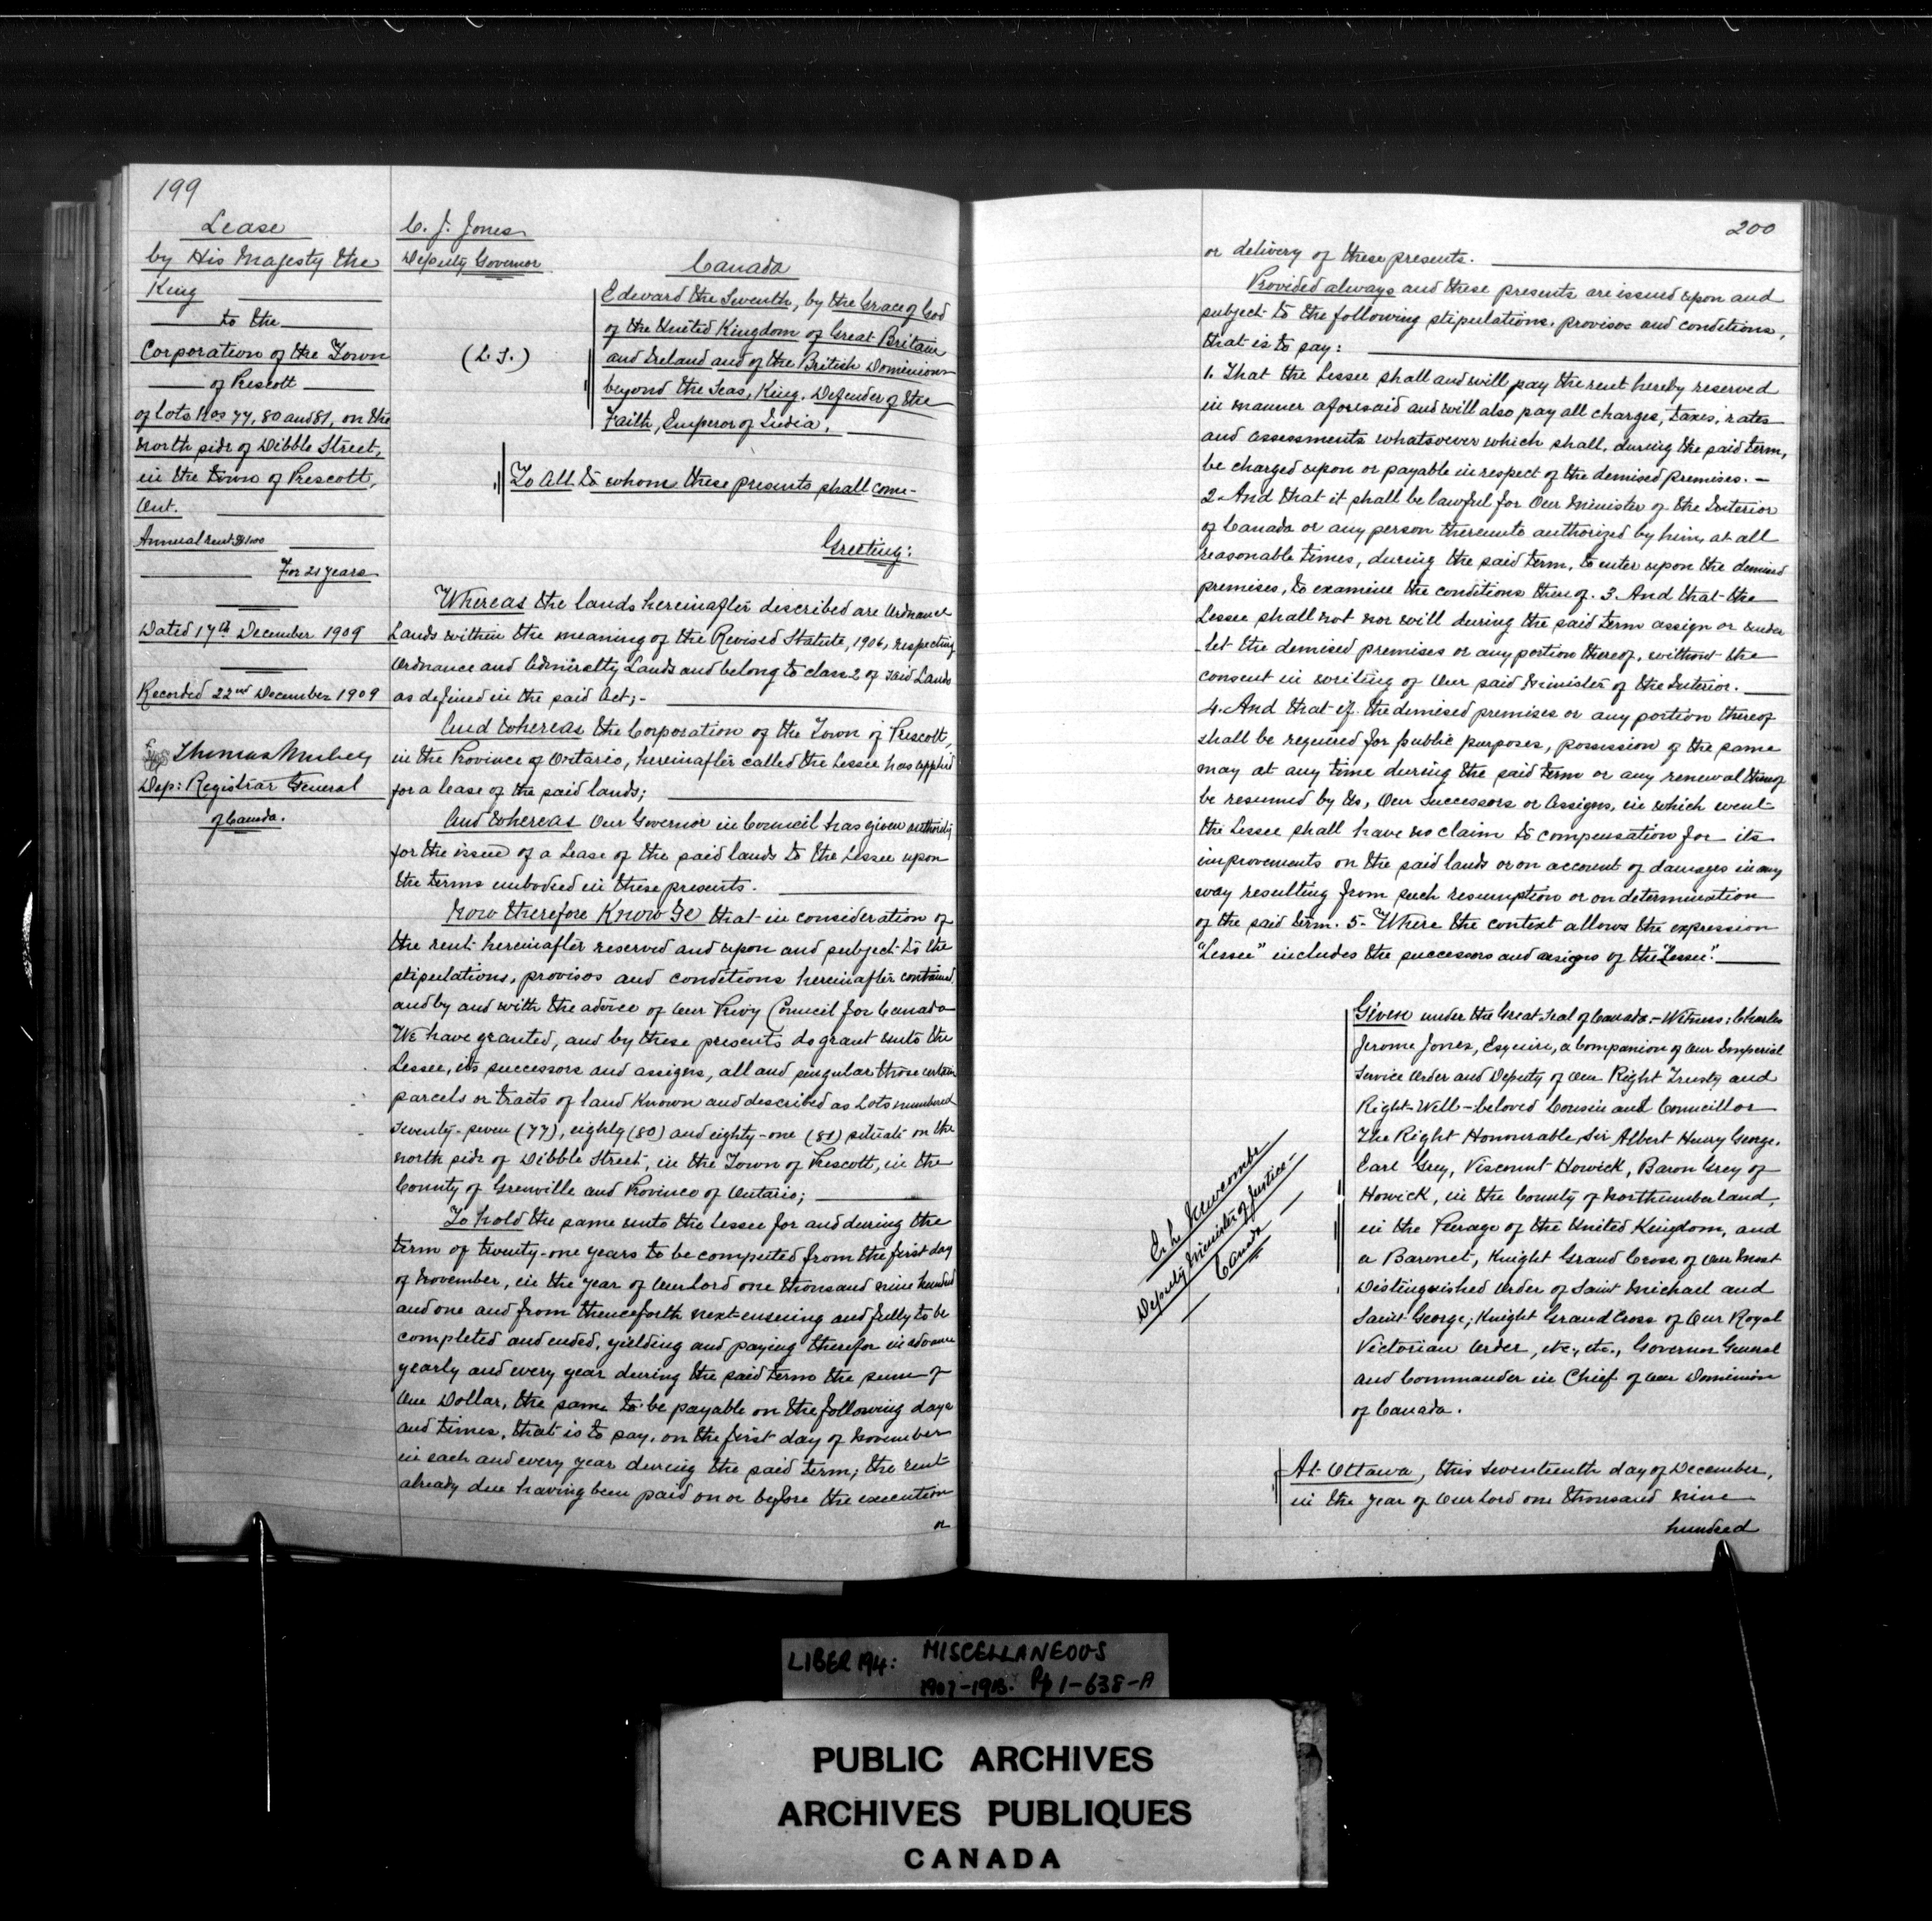 199
Lease
by His Majesty the
King
to the
Corporation of the Town
of Prescott
of Lots Nos 77, 80 and 81, on the
north side of Dibble Street,
in the town of Prescott,
Ont.
Annual rent $1.00
For 21 years
Dated 17th December 1909
Recorded 22nd December 1909
Thomas Mulvey
Dep: Registrar General
of Canada.
C. J. Jones
Deputy Governor
Canada
(L. S.)
Edward the Seventh, by the Grace of God
of the United Kingdom of Great Britain
and Ireland and of the British Dominions
beyond the Seas, King, Defender of the
Faith, Emperor of India.
To All to whom these presents shall come-
Greeting:
Whereas the lands hereinafter described are Ordnance
Lands within the meaning of the Revised Statute, 1906, respecting
Ordnance and Admiralty Lands and belong to class 2 of said Lands
as defined in the said Act;-
And Whereas the Corporation of the Town of Prescott,
in the Province of Ontario, hereinafter called the Lessee has applied
for a lease of the said lands;
And Whereas Our Governor in Council has given authority
for the issue of a Lease of the said lands to the Lessee upon
the terms embodied in these presents.
Now therefore Know Ye that in consideration of
the rent hereinafter reserved and upon and subject to the
stipulations, provisos and conditions hereinafter contained
and by and with the advice of Our Privy Council for Canada
We have granted, and by these presents do grant unto the
Lessee, its successors and assigns, all and singular those certain
parcels or tracts of land known and described as Lots numbered
seventy-seven (77), eighty (80) and eighty-one (81) situate on the
north side of Dibble Street, in the Town of Prescott, in the
County of Grenville and Province of Ontario;
To hold the same unto the Lessee for and during the
term of twenty-one years to be computed from the first day
of November, in the year of Our Lord one thousand nine hundred
and one and from thenceforth next ensuing and fully to be
completed and ended, yielding and paying therefor in advance
yearly and every year during the said term the sum of
One Dollar, the same to be payable on the following days
and times, that is to say, on the first day of November
in each and every year during the said term; the rent
already due having been paid on or before the execution
or
200
or delivery of these presents.
Provided always and these presents are issued upon and
subject to the following stipulations, provisos and conditions,
that is to say:
1. That the Lessee shall and will pay the rent hereby reserved
in manner aforesaid and will also pay all charges, taxes, rates
and assessments whatsoever which shall, during the said term,
be charged upon or payable in respect of the demised premises. -
2. And that it shall be lawful for Our Minister of the Interior
of Canada or any person thereunto authorized by him, at all
reasonable times, during the said term, to enter upon the demised
premises, to examine the conditions thereof. 3. And that the
Lessee shall not nor will during the said term assign or under
-let the demised premises or any portion thereof, without the
consent in writing of Our said Minister of the Interior.
4. And that if the demised premises or any portion thereof
shall be required for public purposes, possession of the same
may at any time during the said term or any renewal thereof
be resumed by Us, Our Successors or Assigns, in which event
the Lessee shall have no claim to compensation for its
improvements on the said lands or on account of damages in any
way resulting from such resumption or on determination
of the said term. 5- Where the context allows the expression
"Lessee" includes the successors and assigns of the "Lessee".
E. L. Newcombe
Deputy Minister of Justice-
Canada
Given under the Great Seal of Canada:- Witness: Charles
Jerome Jones, Esquire, a Companion of Our Imperial
Service Order and Deputy of Our Right Trusty and
Right-Well-beloved Cousin and Councillor
The Right Honourable, Sir Albert Henry George,
Earl Grey, Viscount Howick, Baron Grey of
Howick, in the County of Northumberland,
in the Peerage of the United Kingdom, and
a Baronet, Knight Grand Cross of Our Most
Distinguished Order of Saint Michael and
Saint George; Knight Grand Cross of Our Royal
Victorian Order, etc., etc., Governor General
and Commander in Chief of Our Dominion
of Canada.
At Ottawa, this seventeenth day of December,
in the year of Our Lord one thousand nine
hundred
LIBER 194: MISCELLANEOUS
1907-1913. Pp 1-638-A
PUBLIC ARCHIVES
ARCHIVES PUBLIQUES
CANADA